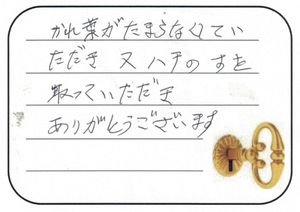 かれ葉がたまらなくてい
ただき 又 ハチの すを
取っていただき
ありがとうございます